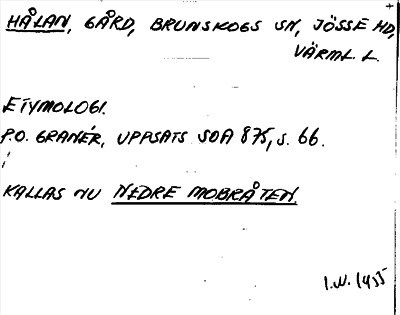 HÅLAN, GÅRD, BRUNSKOGS SN, JÖSSE HD,
VÄRML. L.
ETYMOLOGI.
P.O. GRANÉR, UPPSATS SOA 875, S. 66.
KALLAS NU NEDRE MOBRÅTEN
I.W. 1955